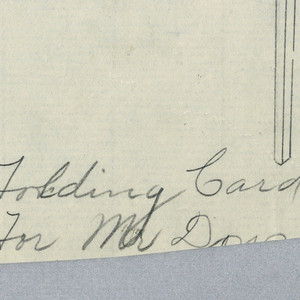 Folding Card
For Mr